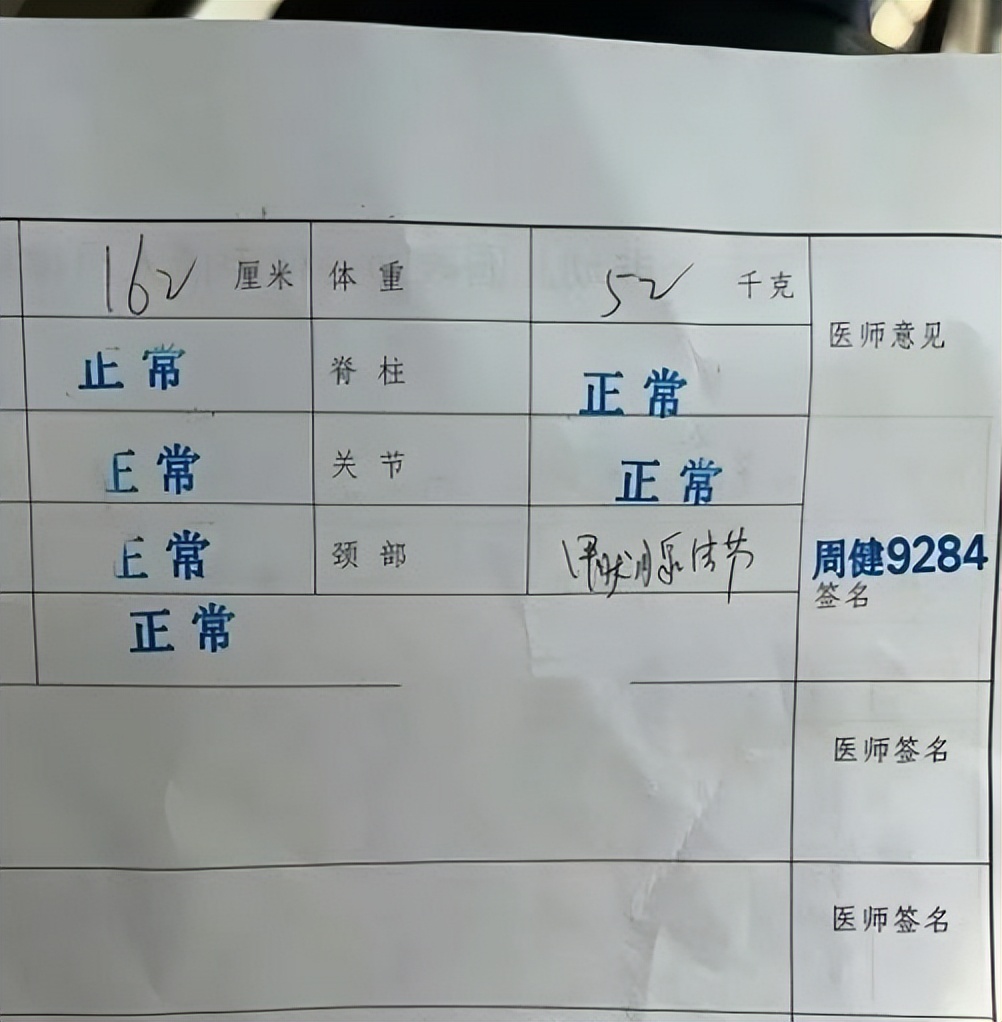 162 厘米 体重 52 千克
医师意见
正常 脊柱 正常
正常 关节 正常
正常 颈部 甲状腺结节
周健9284
签名
正常
医师签名
医师签名